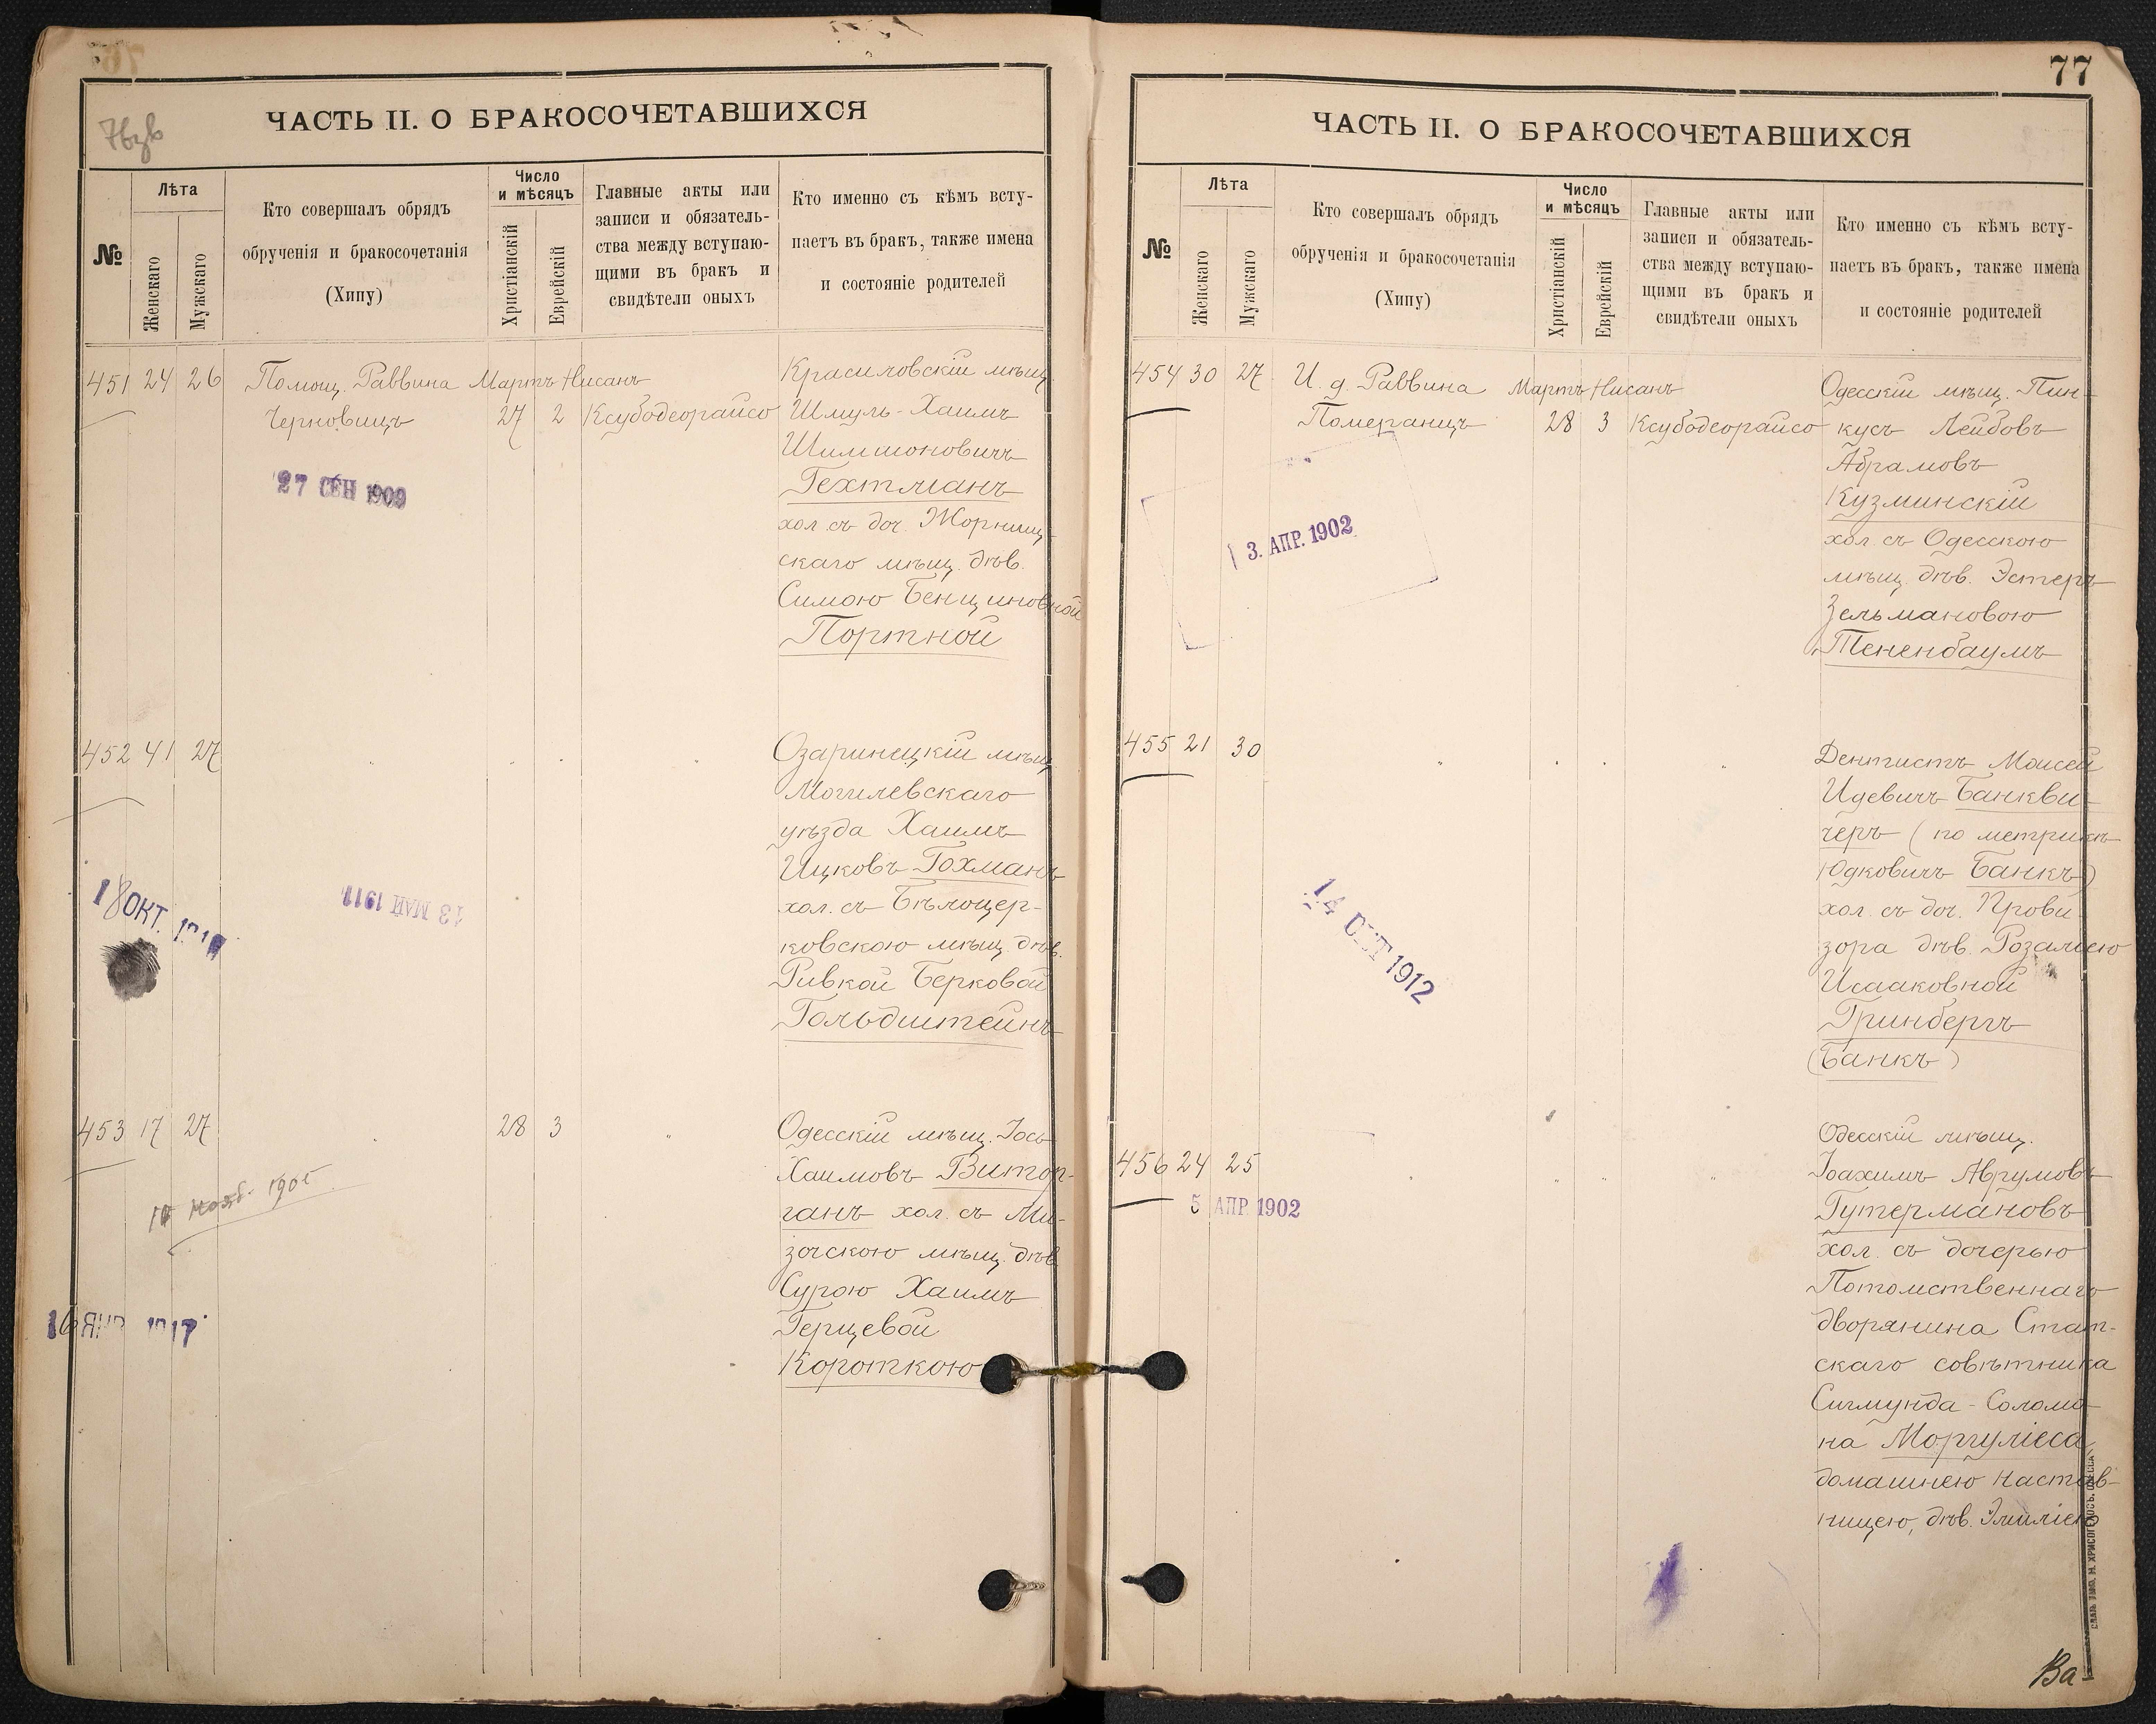 76зв
ЧАСТЬ II. О БРАКОСОЧЕТАВШИХСЯ
№
Лѣта
Женскаго
Мужскаго
Кто совершалъ обрядъ
обрученія и бракосочетанія
(Хипу)
Число
и мѣсяцъ
Христіанскій
Еврейскій
Главные акты или
записи и обязатель-
ства между вступаю-
щими въ бракъ и
свидѣтели оныхъ
Кто именно съ кѣмъ всту-
паетъ въ бракъ, также имена
и состояніе родителей
451 24 26 Помощ. Раввина Мартъ Нисанъ
Черновицъ 27 2 Ксубодеорайсо
Красиловскій мѣщ.
Шмуль-Хаимъ
Шимшоновичъ
Гехтманъ
хол. съ доч. Жорнищ-
скаго мѣщ. дѣв.
Симою Бенционовной
Портной
27 СЕН 1909
452 41 27
Озаринецкій мѣщ.
Могилевскаго
уѣзда Хаимъ
Ицковъ Гохманъ
хол. съ Бѣлоцер-
ковскою мѣщ. дѣв.
Ривкой Берковой
Гольдштейнъ
18 ОКТ.
13 МАЙ 1911
453 17 27 28 3
Одесскій мѣщ. Іось
Хаимовъ Витор-
ганъ хол. съ Ми-
зочскою мѣщ. дѣв.
Сурою Хаимъ
Герцевой
Короткою
Нояб. 1905
16 ЯНР 1917
77
ЧАСТЬ II. О БРАКОСОЧЕТАВШИХСЯ
№
Лѣта
Женскаго
Мужскаго
Кто совершалъ обрядъ
обрученія и бракосочетанія
(Хипу)
Число
и мѣсяцъ
Христіанскій
Еврейскій
Главные акты или
записи и обязатель-
ства между вступаю-
щими въ бракъ и
свидѣтели оныхъ
Кто именно съ кѣмъ всту-
паетъ въ бракъ, также имена
и состояніе родителей
454 30 27 И. д. Раввина Мартъ Нисанъ
Померанцъ 28 3 Ксубодеорайсо
Одесскій мѣщ. Пин-
кусъ Лейбовъ
Абрамовъ
Кузминскій
хол. съ Одесскою
мѣщ. дѣв. Эстеръ
Зельмановою
Тененбаумъ
3. АПР. 1902
455 21 30
Дентистъ Моисей
Идевичъ Банкви-
черъ (по метрикѣ
Юдковичъ Банкъ)
хол. съ доч. Прови-
зора дѣв. Розаліею
Исааковной
Гринбергъ
(Банкъ)
14 ОКТ 1912
456 24 25
Одесскій мѣщ.
Іоахимъ Аврумовъ
Гутермановъ
хол. съ дочерью
Потомственнаго
дворянина Стат-
скаго совѣтника
Сигмунда-Соломо-
на Моргуліеса
домашнею настав-
ницею, дѣв. Эмиліею
5 АПР 1902
Ва